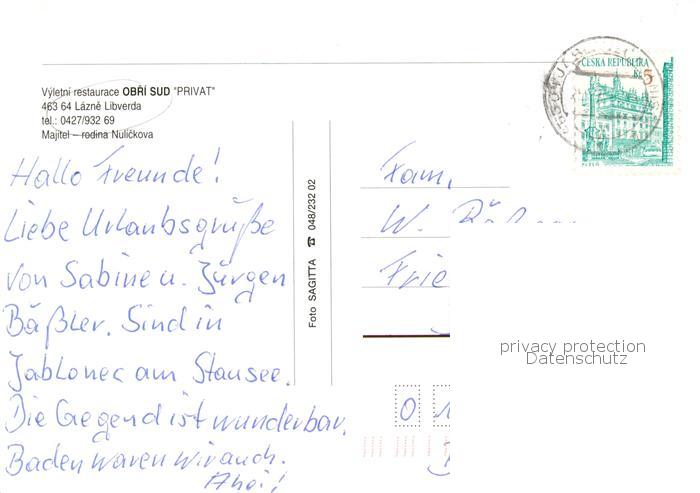 Výletní restaurace OBŘÍ SUD "PRIVAT"
463 64 Lázně Libverda
tel.: 0427/932 69
Majitel – rodina Nulíčkova
Hallo Freunde!
Liebe Urlaubsgrüße
von Sabine u. Jürgen
Bäßler. Sind in
Jablonec am Stausee.
Die Gegend ist wunderbar.
Baden waren wir auch.
Ahoi!
Foto SAGITTA ☎ 048/232 02
ČESKÁ REPUBLIKA
Kč 5
PLZEŇ
Fam.
W.
Frie
0 1
privacy protection
Datenschutz